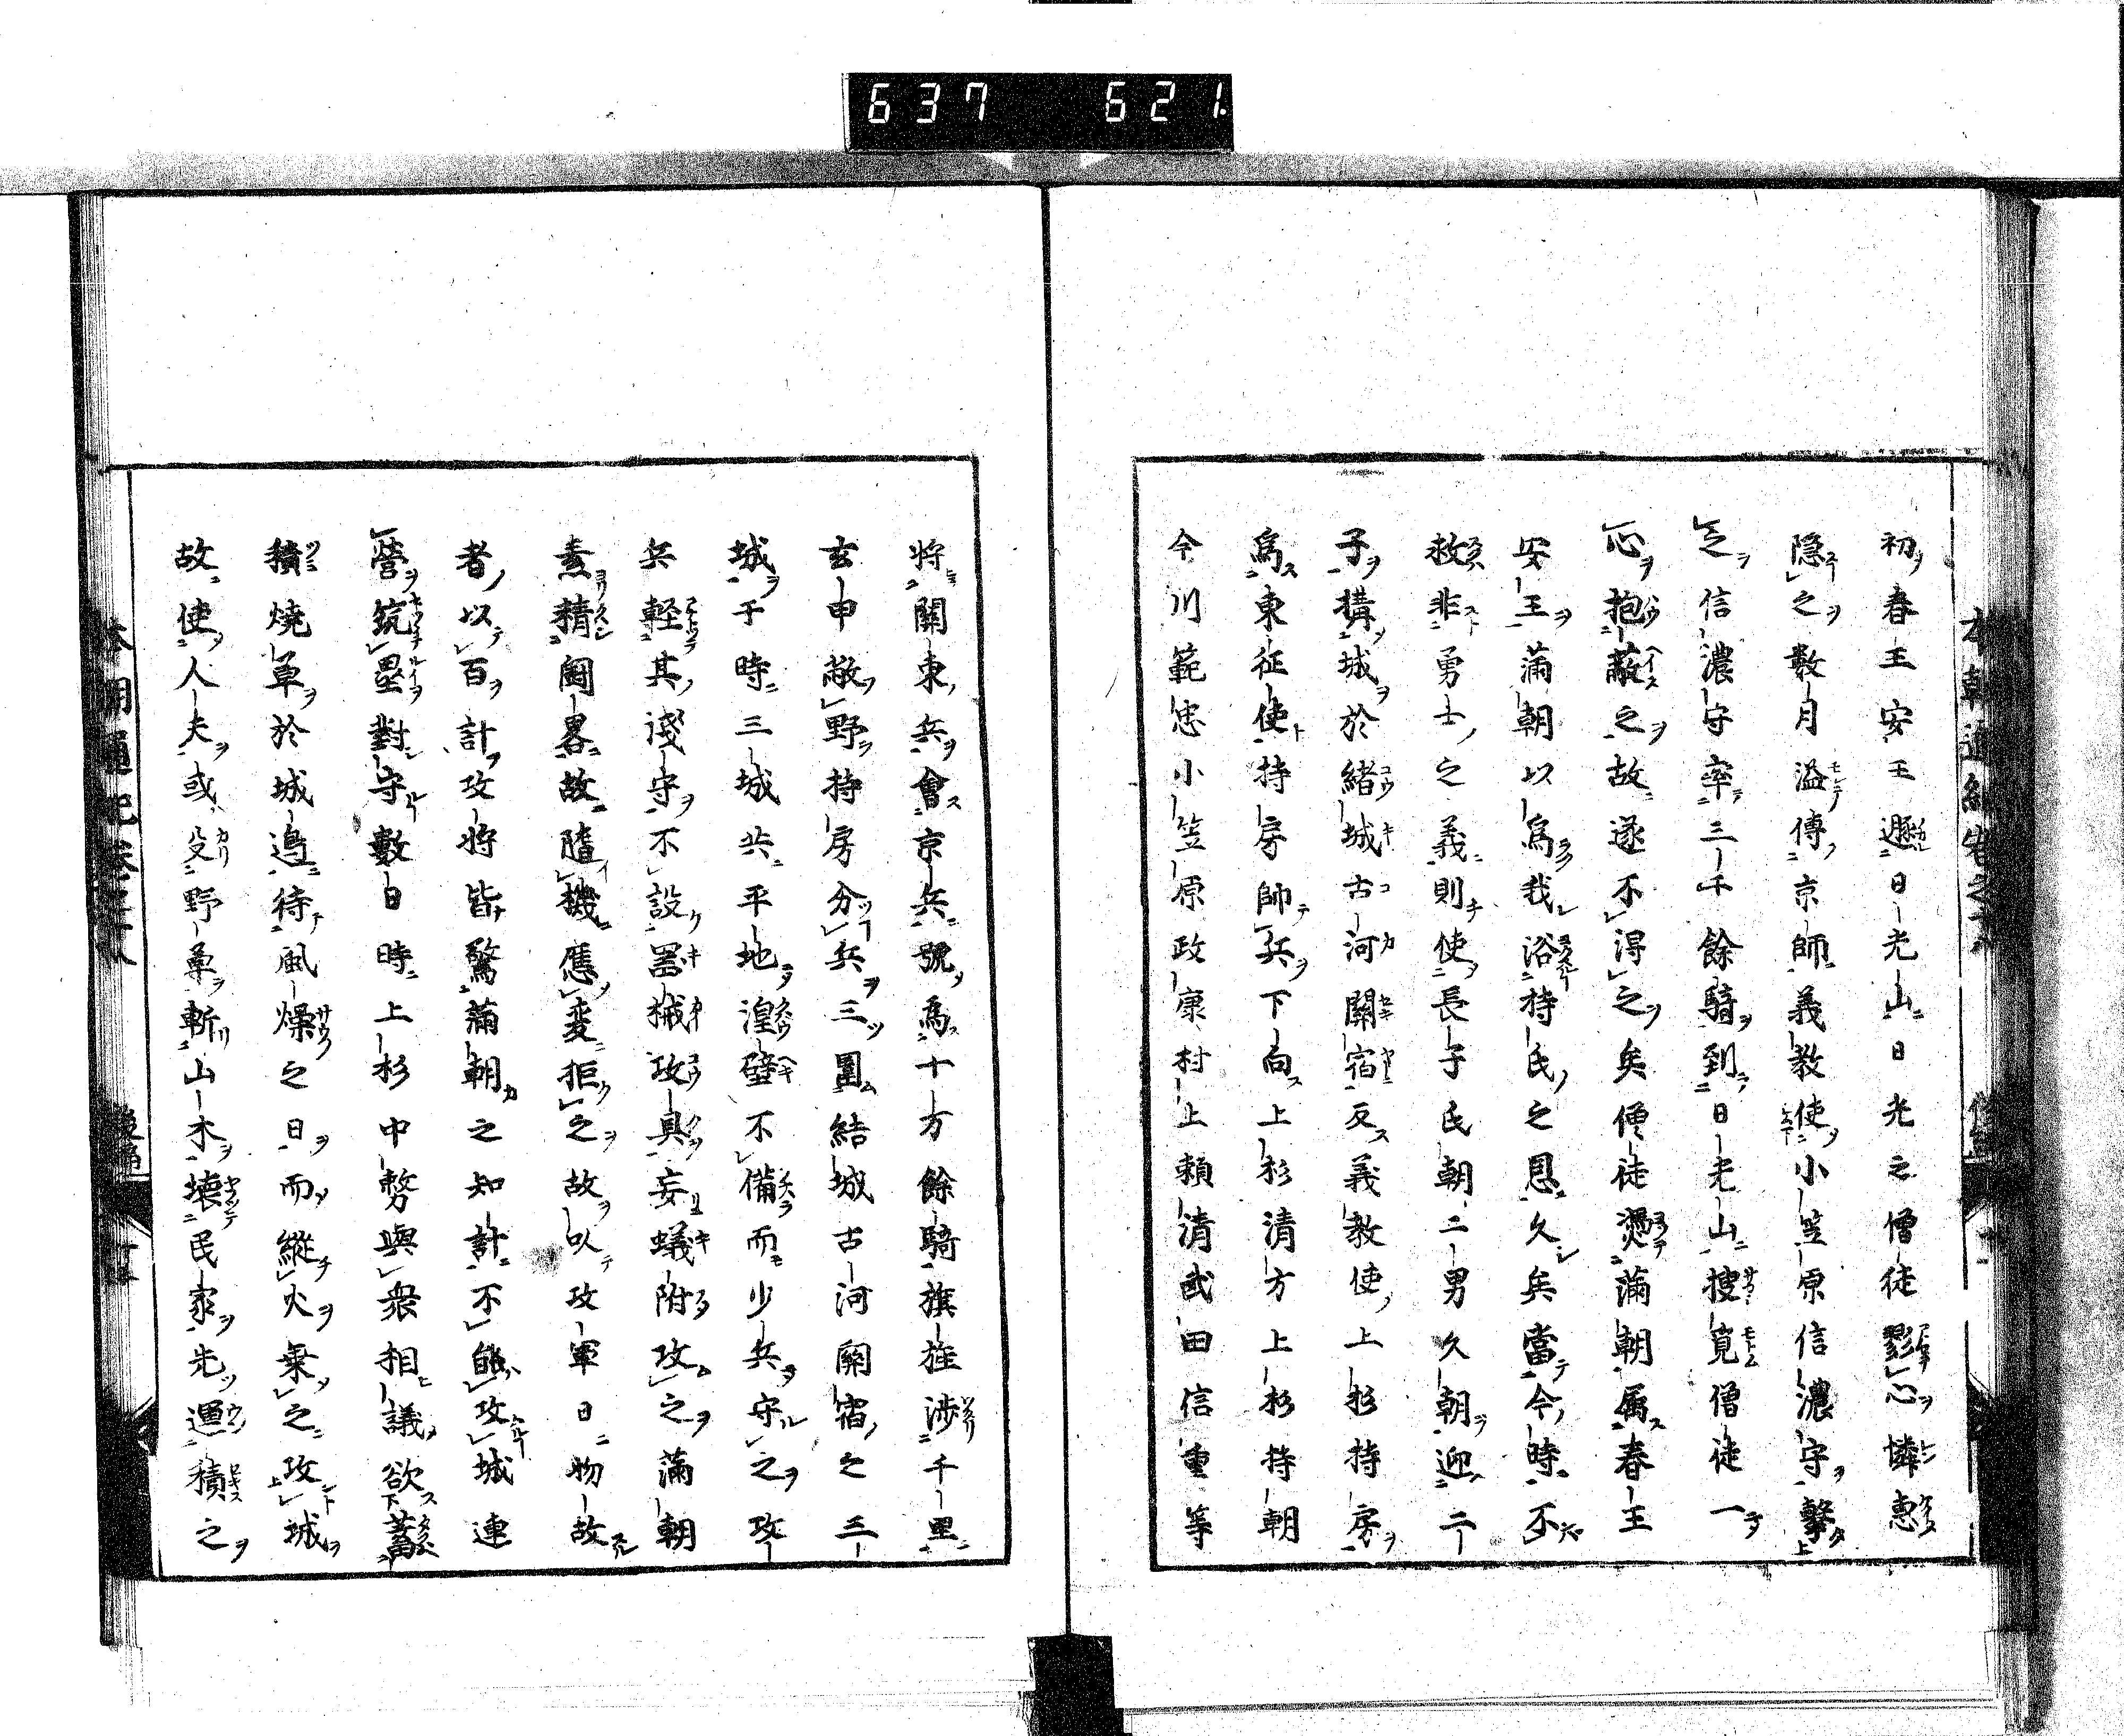 637 621
初春王安王遯日光山日光之僧徒戮心憐惠
隠之數月溢傳京師義教使小笠原信濃守擊
之信濃守率三千餘騎到日光山搜覓僧徒一
心抱蔽之故遂不得之矣僧徒燙滿朝属春王
安王滿朝以爲我浴持氏之恩久矣當今時不
救非勇士之義則使長子氏朝二男久朝迎二
子搆城於緒城古河關宿反義教使上杉持房
爲東征使持房帥兵下向上杉清方上杉持朝
今川範忠小笠原政康村上頼清武田信重等
將關東兵會京兵號爲十万餘騎旗旌涉千里
玄甲敝野持房分兵三圍結城古河關宿之三
城于時三城共平地湟壁不備而少兵守之攻
兵軽其淺守不設器械攻具妄蟻附攻之滿朝
素精閫畧故隨機應変拒之故以攻軍日物故
者以百計攻將皆驚滿朝之知計不能攻城連
營筑壘對守數日時上杉中務與衆相議欲蓄
積燒草於城邊待風燥之日而縱火乗之攻城
故使人夫或殳野藁斬山木壊民家先運積之